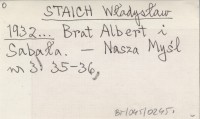 STAICH Władysław
1932... Brat Albert i
Sabała. — Nasza Myśl
nr 3: 35-36,